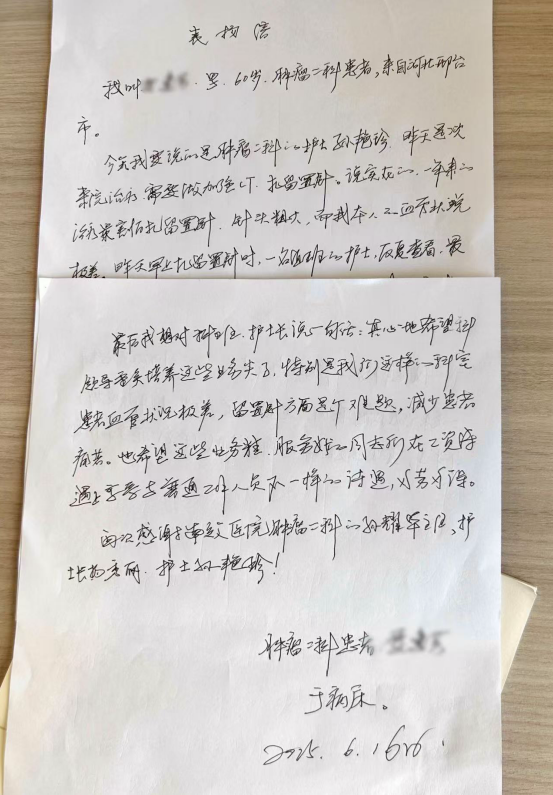 表扬信
我叫 男、60岁、肿瘤二科患者,来自河北邢台
市。
今天我要说的是肿瘤二科的护士孙艳珍,昨天是次
来院治疗需要做加强CT,扎留置针。说实在的,一年来的
治疗最害怕扎留置针,针头粗大,而我本人的血管状况
极差。昨天早上扎留置针时,一名值班的护士,反复查看,最
最后我想对科主任、护士长说一句话:真心地希望科
领导要多培养这些业务尖子,特别是我们这样的科室
患者血管状况极差,留置针方面是个难题,减少患者
痛苦。也希望这些业务精、服务好的同志们在工资待
遇上享受与普通工作人员不一样的待遇,多劳多得。
再次感谢 医院肿瘤二科的孙耀军主任,护
士长 秀丽、护士孙艳珍!
肿瘤二科患者
于病床。
2025.6.16